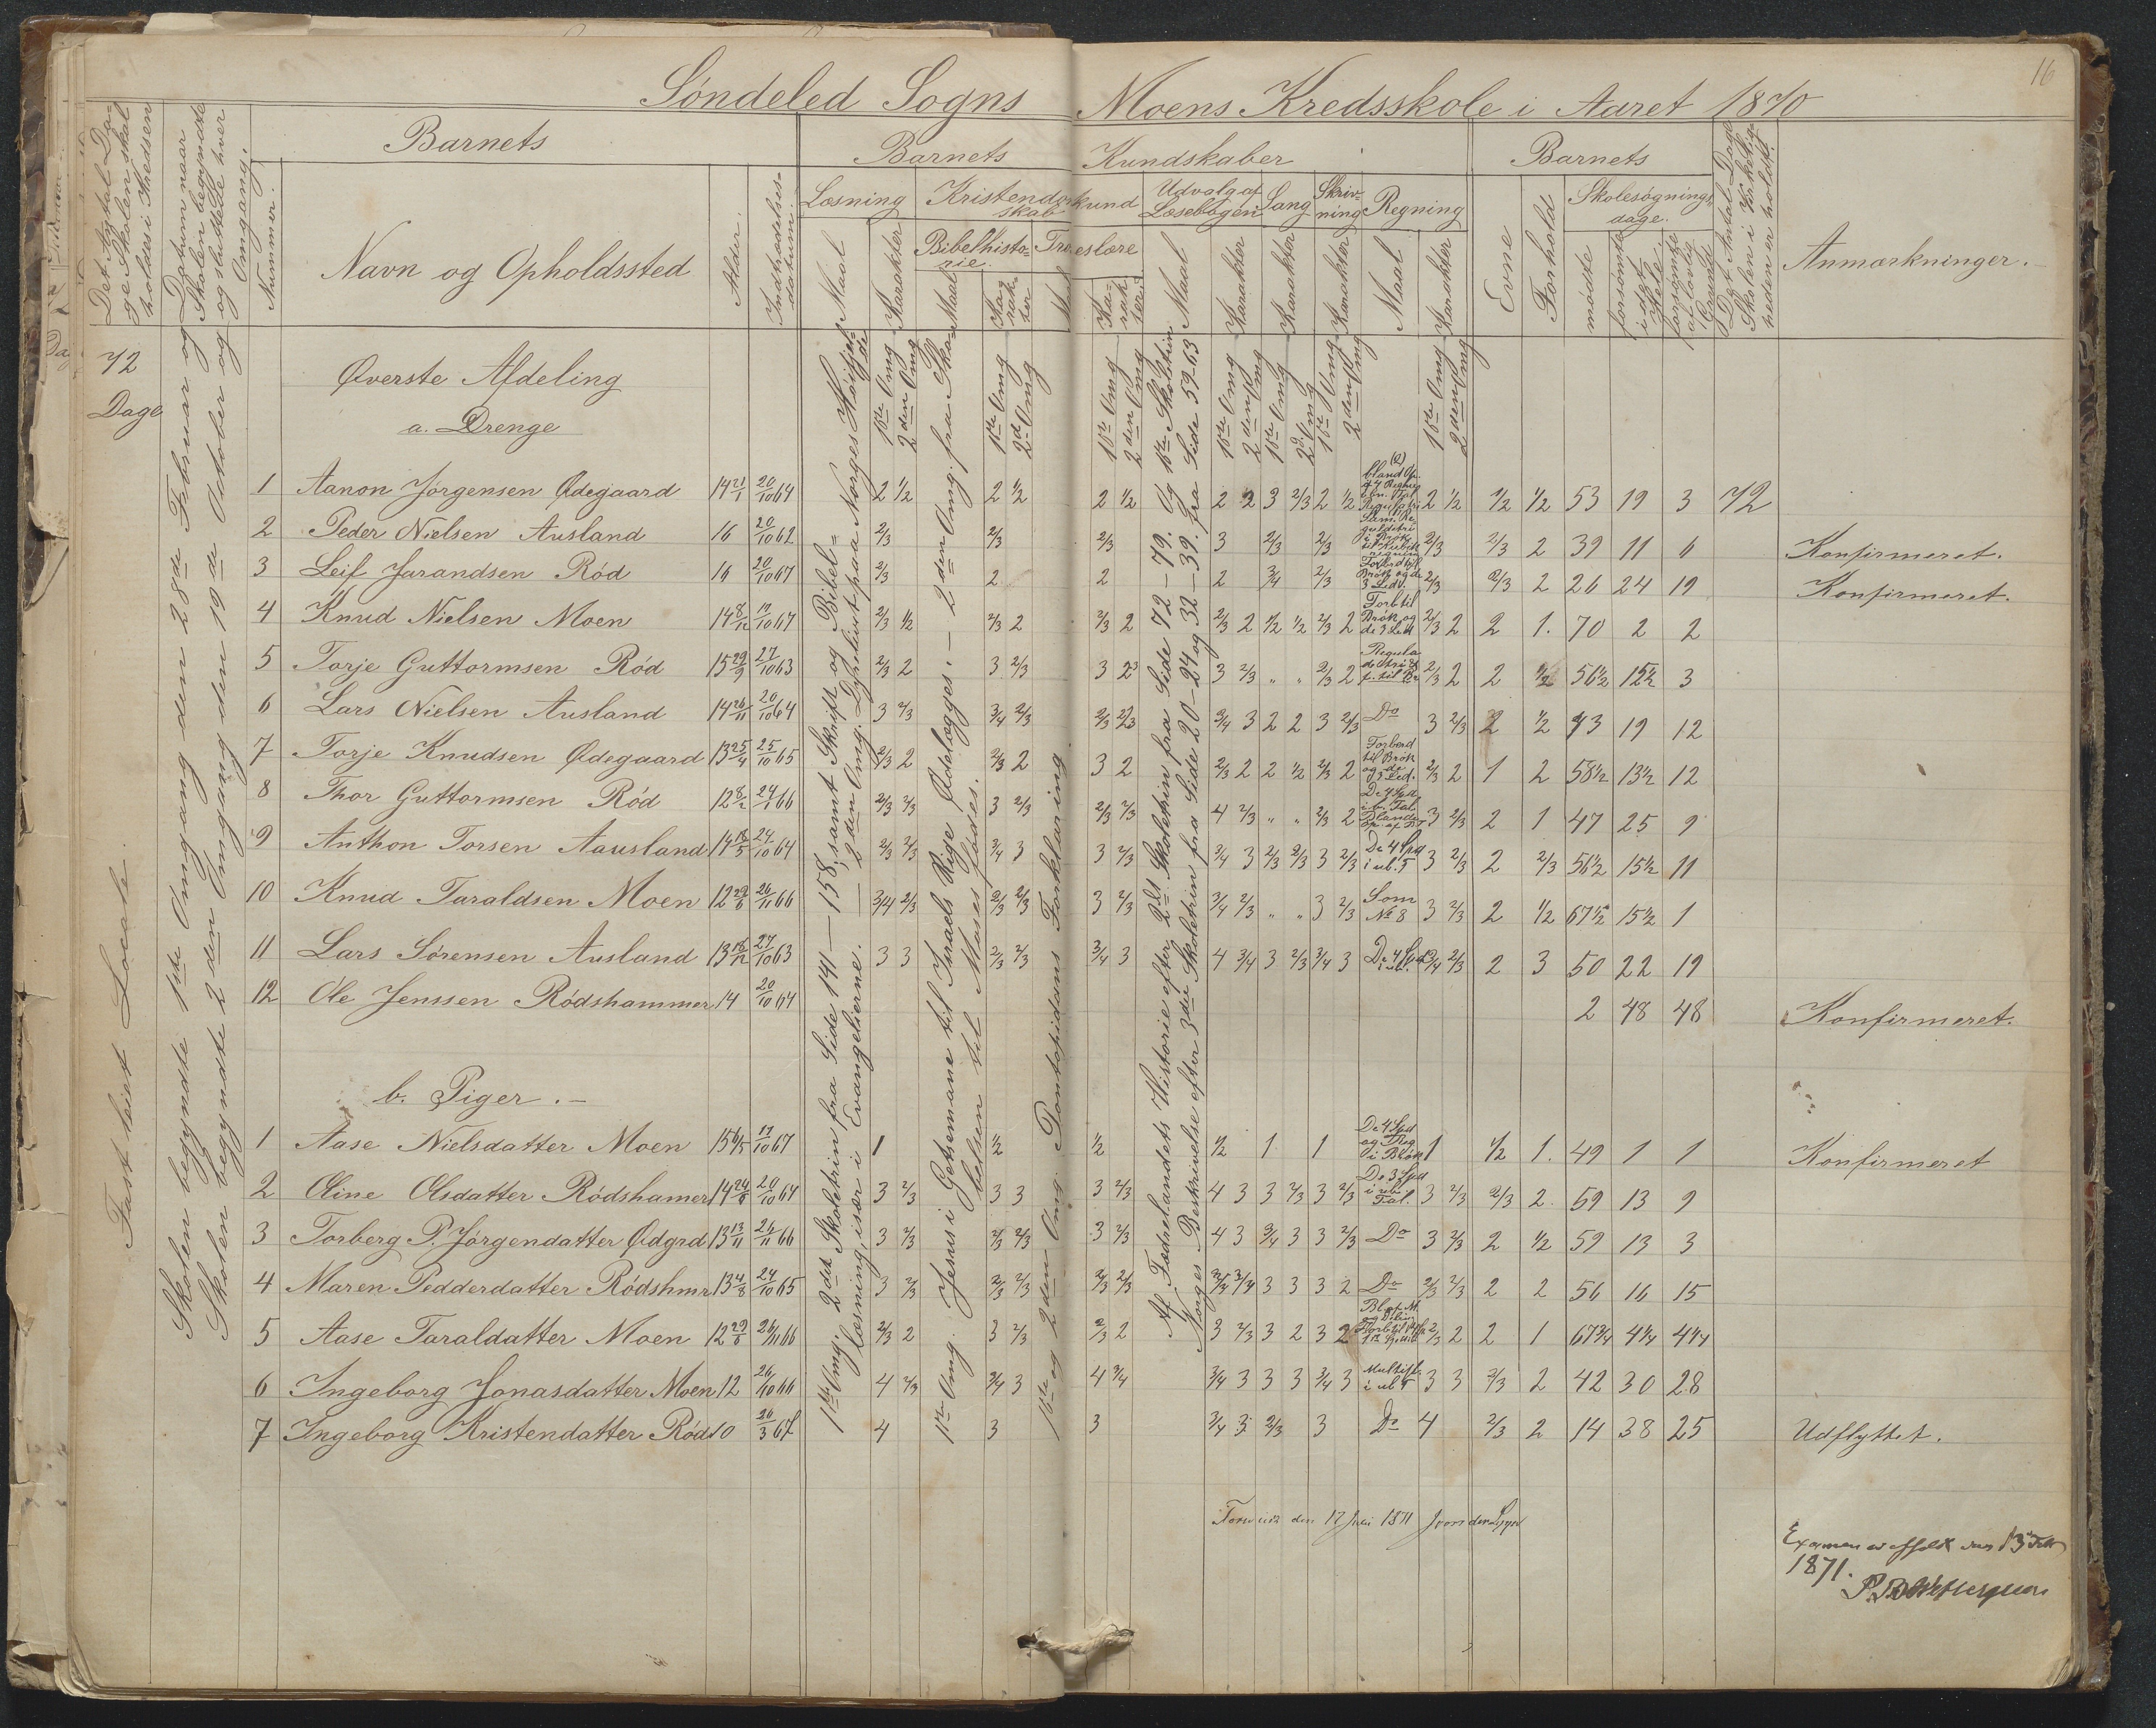 16
Søndeled Sogns Moens Kredsskole i Aaret 1870
Det Ugtal Dage Skolen skal holdes i Kredsen
Datum naar Skolen begyndte og sluttede hver Omgang.
Barnets
Nummer.
Navn og Opholdssted
Alder.
Indtrædelsesdatum.
Barnets Kundskaber
Læsning
Maal
Karakter
Kristendomskundskab
Bibelhistorie.
Maal
Karakter
Troeslære
Maal
Karakter.
Udvalg af Læsebogen
Maal
Karakter
Sang
Karakter
Skrivning
Karakter
Regning
Maal
Karakter
Barnets
Evne
Forhold
Skolesøgningsdage.
mødte
forsømte i det Hele.
forsømte af lovlig Grund
Det Antal Dage Skolen i Virkeligheden er holdt.
Anmærkninger.
72
Dage
Fast leiet Locale.
Skolen begyndte 1ste Omgang den 28de Februar og
Skolen begyndte 2den Omgang den 19de October og
1ste Omg. 2det Skoletrin fra Side 141 — 158, samt Skrift og Bibel-
læsning, især i Evangelierne. — 2den Omg. Dyrelivet paa Norges Høifjelde
1ste Omg. Jesus i Getsemane til Israels Rige Ødelægges. — 2den Omg. fra Ska-
belsen til Moses fødes.
1ste og 2den Omg. Pontopidans Forklaring
Af Fædrelandets Historie efter 2det Skoletrin fra Side 72 — 79. Og 1ste Skoletrin
Norges Beskrivelse efter 3die Skoletrin fra Side 20 — 24 og 32 — 39. fra Side 59-63
1ste Omg 2den Omg
1ste Omg 2d Omg
1ste Omg 2den Omg
1ste Omg 2den Omg
1ste Omg 2d Omg
1ste Omg 2den Omg
1ste Omg 2den Omg
Øverste Afdeling
a. Drenge
1 Aanon Jørgensen Ødegaard 14 21/1 20/10 64 2 1/2 2 1/2 2 1/2 2 2 3 2/3 2 1/2 2 1/2 1/2 1/2 53 19 3 72
2 Peder Nielsen Ausland 16 20/10 62 2/3 2/3 2/3 3 2/3 2/3 2/3 2/3 2 39 11 6 Konfirmeret.
3 Leif Jarandsen Rød 16 20/10 67 2/3 2 2 2 3/4 2/3 2/3 2/3 2 26 24 19 Konfirmeret.
4 Knud Nielsen Moen 14 8/12 19/10 67 2/3 1/2 2/3 2 2/3 2 2/3 2 1/2 1/2 2/3 2 Forb til Brøk og de 3 Led 2/3 2 2 1. 70 2 2
5 Torje Guttormsen Rød 15 29/9 27/10 63 2/3 2 3 2/3 3 2/3 3 2/3 " " 2/3 2 2/3 2 2 1/2 56 1/2 15 1/2 3
6 Lars Nielsen Ausland 14 26/11 20/10 64 3 2/3 3/4 2/3 2/3 2/3 3/4 3 2 2 3 2/3 Do 3 2/3 2 1/2 43 19 12
7 Torje Knudsen Ødegaard 13 25/4 25/10 65 2/3 2 2/3 2 3 2 2/3 2 2 1/2 2/3 2 2/3 2 1 2 58 1/2 13 1/2 12
8 Thor Guttormsen Rød 12 8/2 24/1 66 2/3 2/3 3 2/3 2/3 2/3 4 2/3 " " 2/3 2 3 2/3 2 1 47 25 9
9 Anthon Torsen Aausland 14 18/5 24/10 64 2/3 2/3 3/4 3 3 2/3 3/4 3 2/3 2/3 3 2/3 De 4 Spd i ub. T 3 2/3 2 2/3 56 1/2 15 1/2 11
10 Knud Taraldsen Moen 12 29/6 26/11 66 3/4 2/3 2/3 2/3 3 2/3 3/4 2/3 " " 3 2/3 Som No 8 3 2/3 2 1/2 67 1/2 15 1/2 1
11 Lars Sørensen Ausland 13 16/12 27/10 63 3 3 2/3 2/3 3/4 3 4 3/4 3 2/3 3/4 3 De 4 Spd i ub. 3/4 2/3 2 3 50 22 19
12 Ole Jenssen Rødshammer 14 20/10 64 2 48 48 Konfirmeret.
b. Piger. —
1 Aase Nielsdatter Moen 15 6/5 19/10 67 1 1/2 1/2 1/2 1 1 De 4 Spd og Reg i Brøk 1 1/2 1. 49 1 1 Konfirmeret
2 Oline Olsdatter Rødshamer 14 24/8 20/10 64 3 2/3 3 3 3 2/3 4 3 3 2/3 3 2/3 De 3 Spd i ub Tal. 3 2/3 2/3 2. 59 13 9
3 Torberg P. Jørgendatter Ødgrd 13 13/11 26/11 66 3 2/3 2/3 2/3 3 2/3 4 3 3/4 3 3 2/3 Do 3 2/3 2 1/2 59 13 3
4 Maren Pedderdatter Rødshmr 13 4/8 24/10 65 3 2/3 2/3 2/3 2/3 2/3 3/4 3/4 3 3 3 2 Do 2/3 2/3 2 2 56 16 15
5 Aase Taraldatter Moen 12 29/6 26/11 66 2/3 2 3 2/3 2/3 2 3 2/3 3 2 3 2 2/3 2 2 1 67 3/4 4 1/4 4 1/4
6 Ingeborg Jonasdatter Moen 12 26/10 66 4 2/3 3/4 3 4 3/4 3/4 3 3 3 3/4 3 Multipl. i ub T 3 3 2/3 2 42 30 28
7 Ingeborg Kristendatter Rød 10 26/3 67 4 3 3 3/4 3 2/3 3 Do 4 2/3 2 14 38 25 Udflyttet.
den 17 Juni 1871
Examen afholdt den 13 Febr
1871.